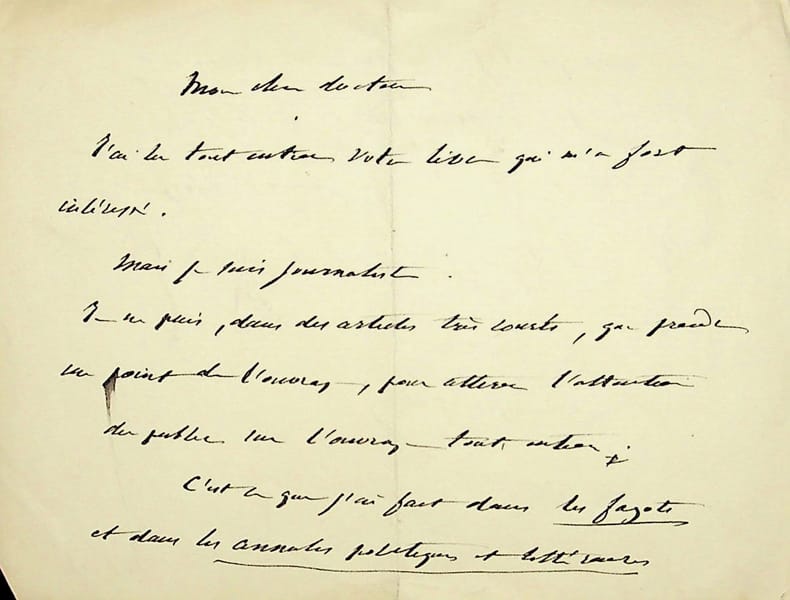 Mon cher docteur
J'ai lu tout entier votre livre qui m'a fort
intéressé.
Mais je suis journaliste.
Je ne puis, dans des articles très courts, que prendre
un point de l'ouvrage, pour attirer l'attention
du public sur l'ouvrage tout entier.
C'est ce que j'ai fait dans les fagots
et dans les annales politiques et littéraires